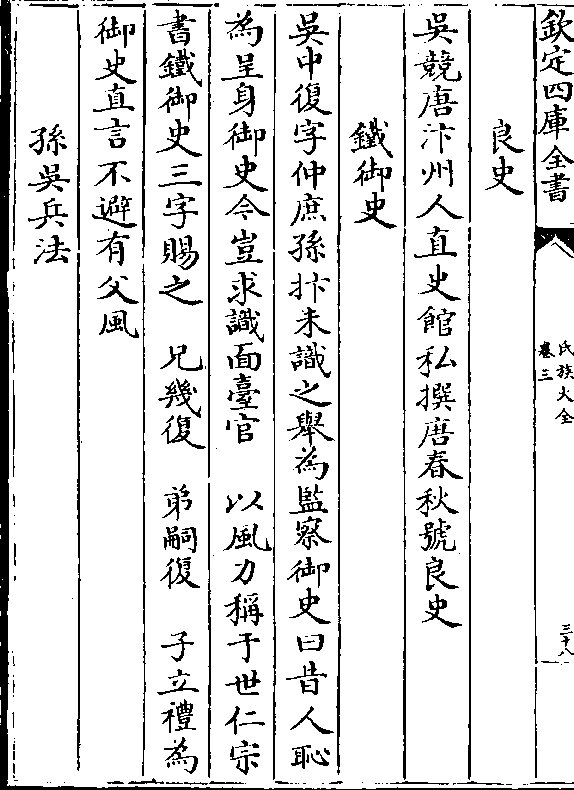 欽定四庫全書
氏族大全
卷三
三十八
良史
吳競唐汴州人直史館私撰唐春秋號良史
鐵御史
吳中復字仲庶孫抃未識之舉為監察御史曰昔人恥
為呈身御史今豈求識面臺官　以風力稱于世仁宗
書鐵御史三字賜之　兄幾復　弟嗣復　子立禮為
御史直言不避有父風
孫吳兵法